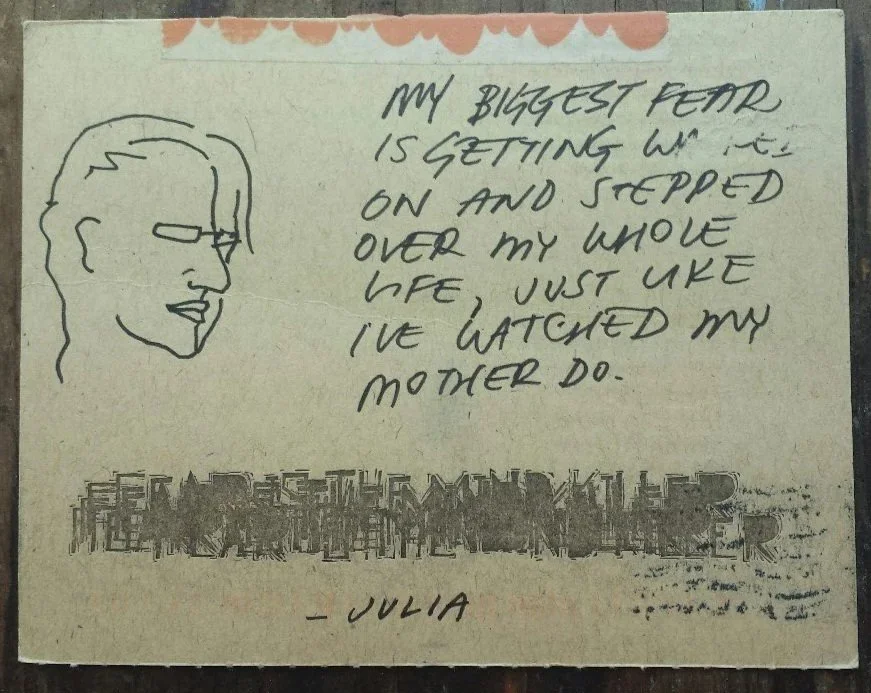 MY BIGGEST FEAR
IS GETTING
ON AND STEPPED
OVER MY WHOLE
LIFE, JUST LIKE
I'VE WATCHED MY
MOTHER DO.
FEAR IS THE MIND KILLER
- JULIA